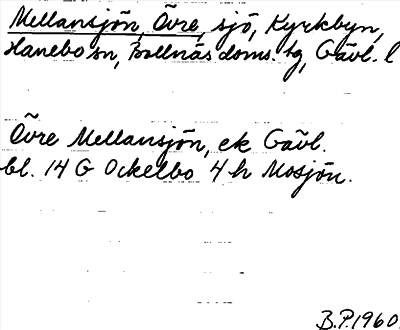 Mellansjön, Övre, sjö, Kyrkbyn,
Hanebo sn, Bollnäs doms. tg, Gävl. l
Övre Mellansjön, ek Gävl.
bl. 14 G Ockelbo 4 h Mosjön.
B.P. 1960.